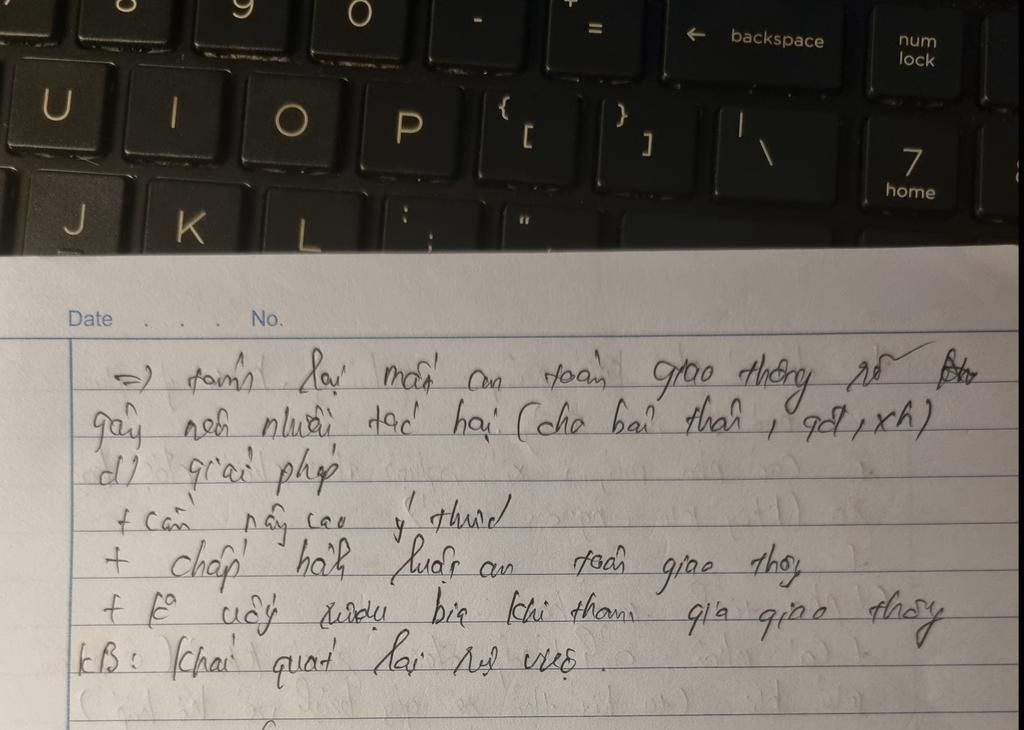 8 9 0 - + = ← backspace num lock
U I O P { [ } ] | \ 7 home
J K L : ; "
Date . . . No.
=> tóm lại mất an toàn giao thông sẽ
gây nên nhiều tác hại (cho bản thân, gđ, xh)
d) giải pháp
+ cần nâng cao ý thức
+ chấp hành luật an toàn giao thông
+ K uống rượu bia khi tham gia giao thông
KB: Khái quát lại sự việc.